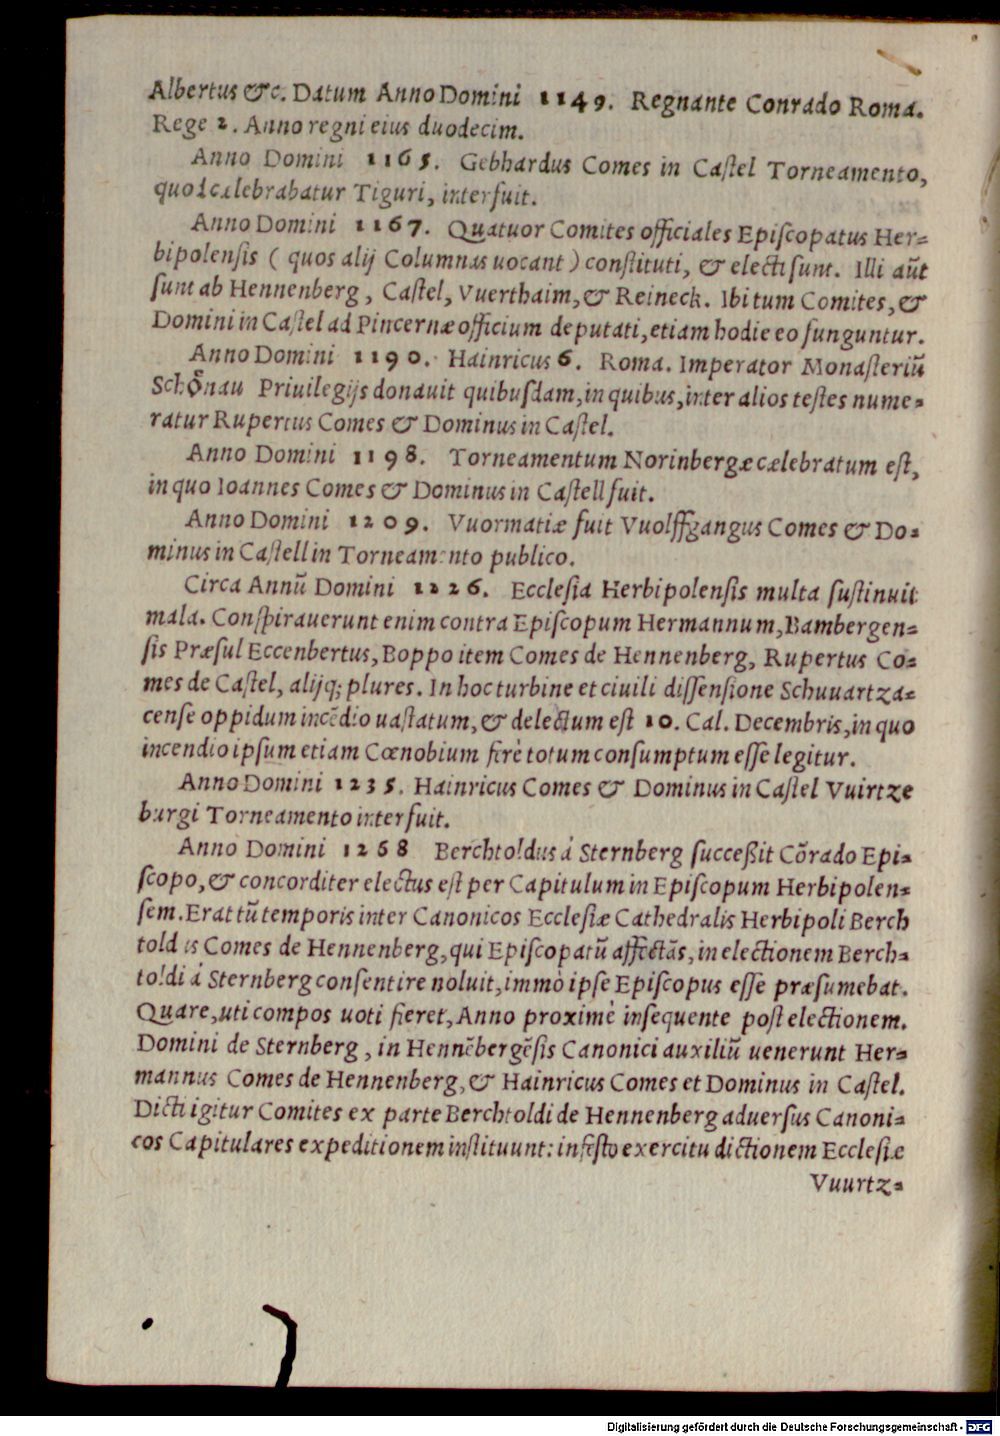 Albertus &c. Datum Anno Domini 1149. Regnante Conrado Roma.
Rege 2. Anno regni eius duodecim.
Anno Domini 1165. Gebhardus Comes in Castel Torneamento,
quod celebrabatur Tiguri, interfuit.
Anno Domini 1167. Quatuor Comites officiales Episcopatus Her-
bipolensis ( quos alij Columnas uocant ) constituti, & electi sunt. Illi aũt
sunt ab Hennenberg, Castel, Vuerthaim, & Reineck. Ibi tum Comites, &
Domini in Castel ad Pincernæ officium deputati, etiam hodie eo funguntur.
Anno Domini 1190. Hainricus 6. Roma. Imperator Monasteriũ
Schoͤnau Priuilegijs donauit quibusdam, in quibus, inter alios testes nume-
ratur Rupertus Comes & Dominus in Castel.
Anno Domini 1198. Torneamentum Norinbergæ cælebratum est,
in quo Ioannes Comes & Dominus in Castell fuit.
Anno Domini 1209. Vuormatiæ fuit Vuolffgangus Comes & Do-
minus in Castell in Torneamento publico.
Circa Annũ Domini 1226. Ecclesia Herbipolensis multa sustinuit
mala. Conspirauerunt enim contra Episcopum Hermannum, Bambergen-
sis Præsul Eccenbertus, Boppo item Comes de Hennenberg, Rupertus Co-
mes de Castel, alijq; plures. In hoc turbine et ciuili dissensione Schuuartza-
cense oppidum incẽdio uastatum, & delectum est 10. Cal. Decembris, in quo
incendio ipsum etiam Cœnobium ferè totum consumptum esse legitur.
Anno Domini 1235. Hainricus Comes & Dominus in Castel Vuirtze
burgi Torneamento interfuit.
Anno Domini 1268 Berchtoldus á Sternberg succeßit Cõrado Epi-
scopo, & concorditer electus est per Capitulum in Episcopum Herbipolen-
sem. Erat tũ temporis inter Canonicos Ecclesiæ Cathedralis Herbipoli Berch
toldus Comes de Hennenberg, qui Episcopatũ affectãs, in electionem Berch-
toldi á Sternberg consentire noluit, immò ipse Episcopus esse præsumebat.
Quare, uti compos uoti fieret, Anno proximè insequente post electionem.
Domini de Sternberg, in Hennẽbergẽsis Canonici auxiliũ uenerunt Her-
mannus Comes de Hennenberg, & Hainricus Comes et Dominus in Castel.
Dicti igitur Comites ex parte Berchtoldi de Hennenberg aduersus Canoni-
cos Capitulares expeditionem instituunt: infesto exercitu dictionem Ecclesiæ
Vuurtz-
Digitalisierung gefördert durch die Deutsche Forschungsgemeinschaft - DFG